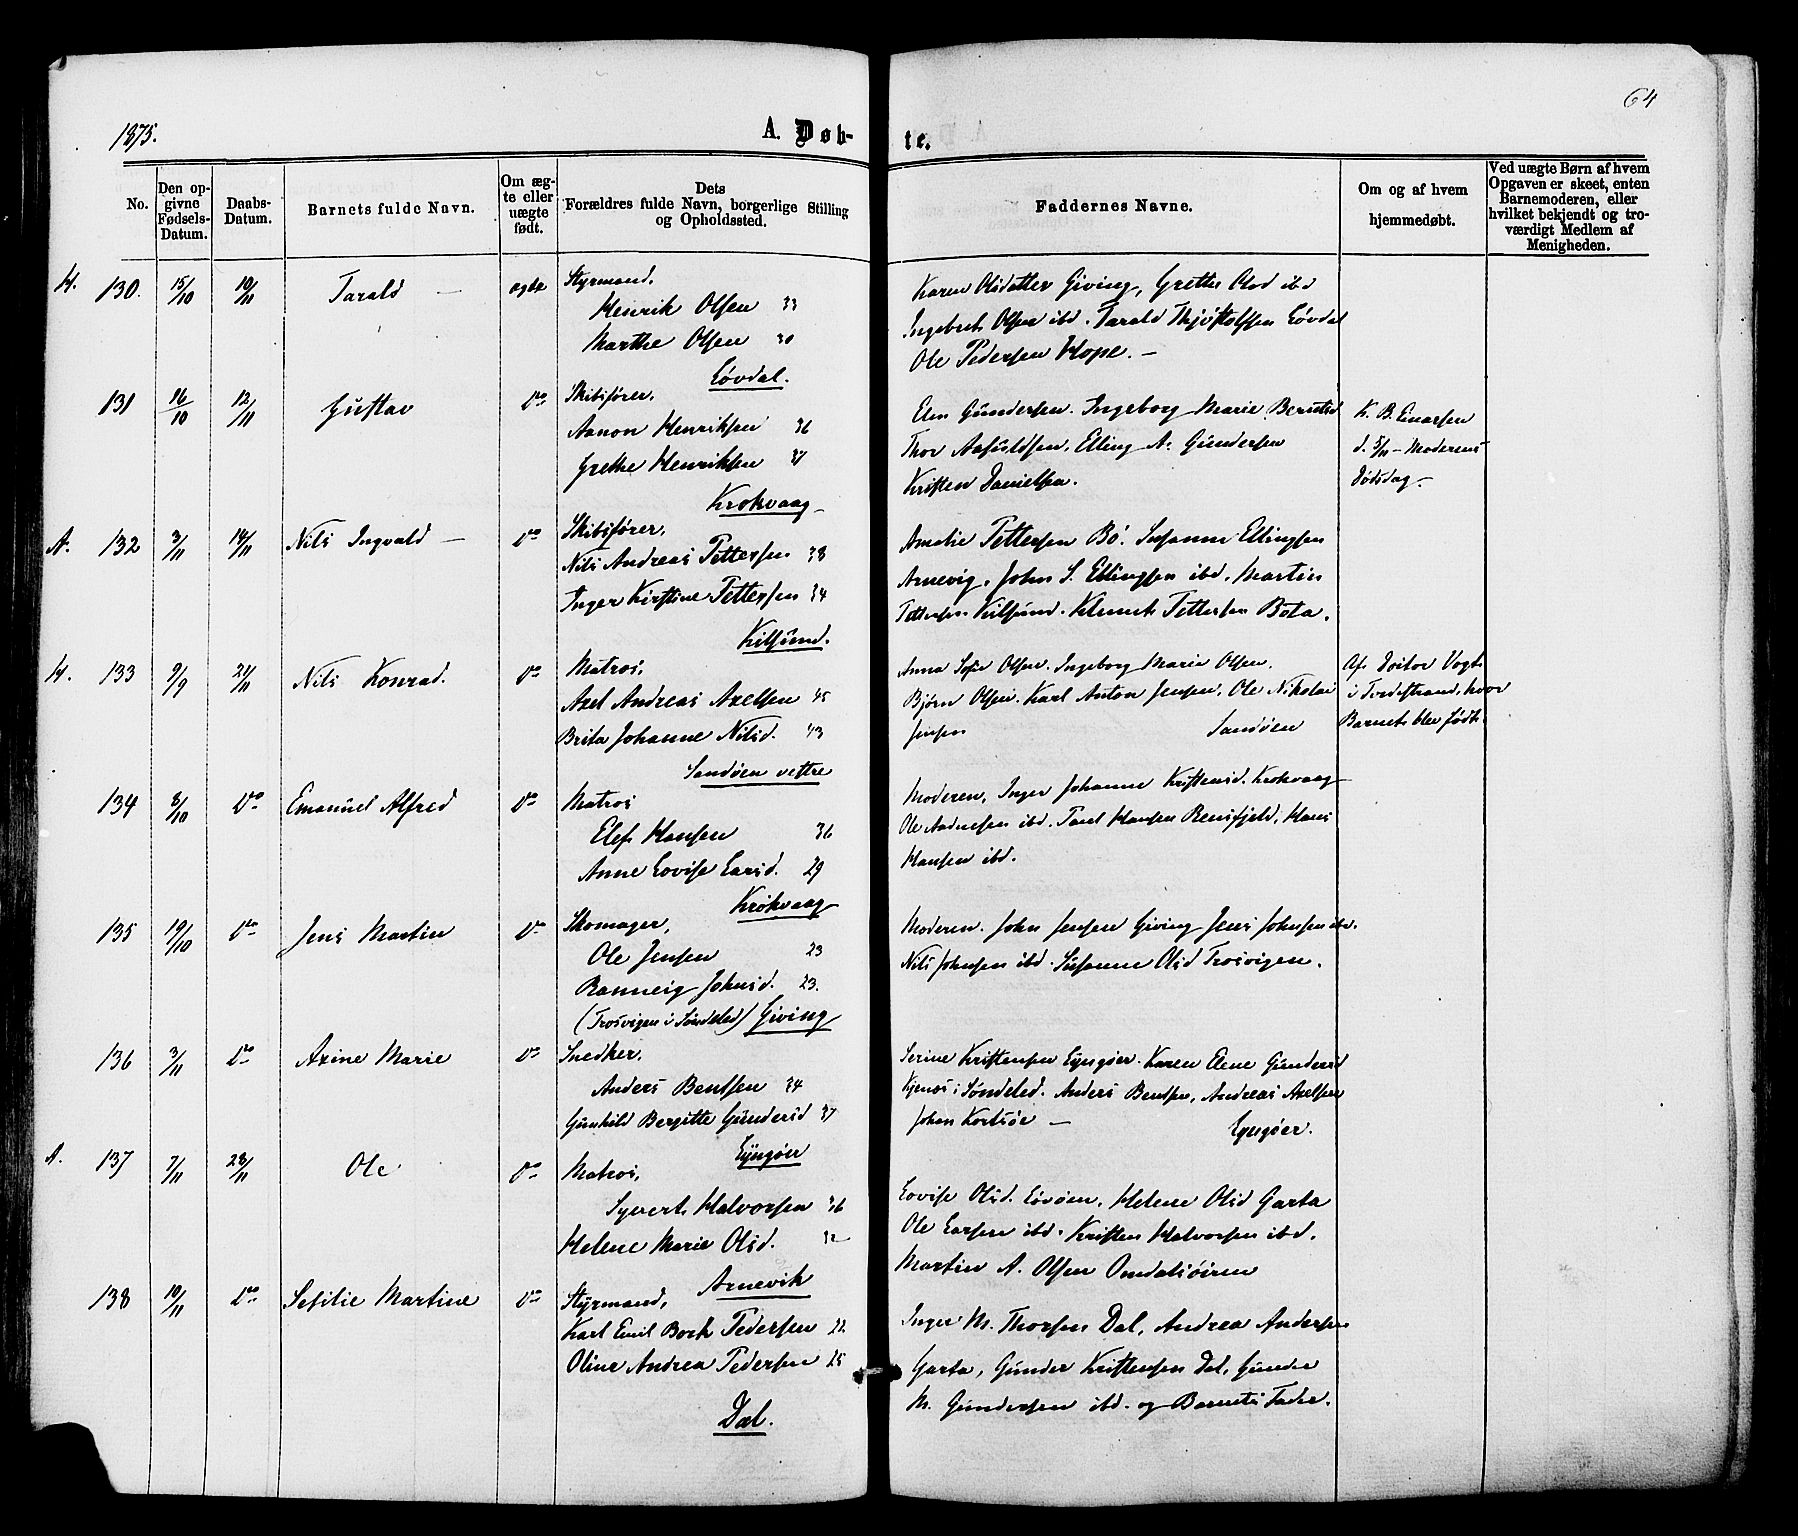 64
1875.
A. Døb-
te.
No.
Den op-
givne
Fødsels-
Datum.
Daabs-
Datum.
Barnets fulde Navn.
Om æg-
te eller
uægte
født.
Dets
Forældres fulde Navn, borgerlige Stilling
og Opholdssted.
Faddernes Navne.
Om og af hvem
hjemmedøbt.
Ved uægte Børn af hvem
Opgaven er skeet, enten
Barnemoderen, eller
hvilket bekjendt og tro-
værdigt Medlem af
Menigheden.
H. 130. 15/10 10/11 Tarald — ægte Styrmand,
Henrik Olsen 33
Marthe Olsen 30
Løvdal.
Karen Olsdatter Giving, Grethe Olsd ibd
Ingebret Olsen ibd. Tarald Thjøstolfsen Løvdal
Ole Pedersen Hope. —
131 16/10 12/11 Gustav Do Skibsfører,
Aanon Henriksen 36
Grethe Henriksen 37
Krokvaag —
Elen Gundersen. Ingeborg Marie Berntsd
Thor Aasuldsen, Elling A. Gundersen
Kristen Danielsen.
K. B. Einarsen
d. 5/11 — Moderens
Dødsdag —
A. 132 3/11 14/11 Nils Ingvald — Do Skibsfører,
Nils Andreas Pettersen 38
Inger Kirstine Pettersen 34
Kilsund.
Amalie Pettersen Bo. Susanne Ellingsen
Arnevig, John S. Ellingsen ibd, Martin
Pettersen Kilsund. Klemet Pettersen Bota.
H. 133 9/9 21/11 Nils Konrad. Do Matros,
Axel Andreas Axelsen 45
Brita Johanne Nilsd. 43
Sandøen vestre
Anna Sofie Olsen. Ingeborg Marie Olsen.
Bjørn Olsen. Karl Anton Jensen, Ole Nikolai
Jensen Sandøen
Af Doktor Vogt
i Tvedestrand, hvor
Barnet blev født.
134 8/10 Do Emanuel Alfred Do Matros
Elef Hansen 36
Anne Lovise Larsd. 29
Krokvaag
Moderen, Inger Johanne Kristensd. Krokvaag
Ole Aadnesen ibd. Tarel Hansen Rensfjeld, Hans
Hansen ibd.
135 19/10 Do Jens Martin Do Skomager,
Ole Jensen 23
Ranneig Johnsd. 23.
(Trosvigen i Søndeled) Giving
Moderen. John Jensen Giving Jens Johnsen ibd.
Nils Johnsen ibd. Susanne Olsd Trosvigen.
136 3/11 Do Axine Marie Do Snedker,
Anders Bentsen 34
Gunhild Bergitte Gundersd 37
Lyngøer
Serine Kristensen Lyngøer. Karen Elene Gundersd
i Søndeled. Anders Bentsen, Andreas Axelsen
Johan — Lyngøer.
A. 137 7/11 28/11 Ole Do Matros,
Syvert Halvorsen 36
Helene Marie Olsd. 32
Arnevik
Lovise Olsd. Løvøen, Helene Olsd Garta
Ole Larsen ibd. Kristen Halvorsen ibd.
Martin A. Olsen Omdalsøiren
138 10/11 Do Sesilie Martine Do Styrmand,
Karl Emil Bock Pedersen 22
Oline Andrea Pedersen 25
Dal.
Inger M. Thorsen Dal, Andrea Andersen
Garta, Gunder Kristensen Dal, Gunder
M. Gundersen ibd. og Barnets Fader.